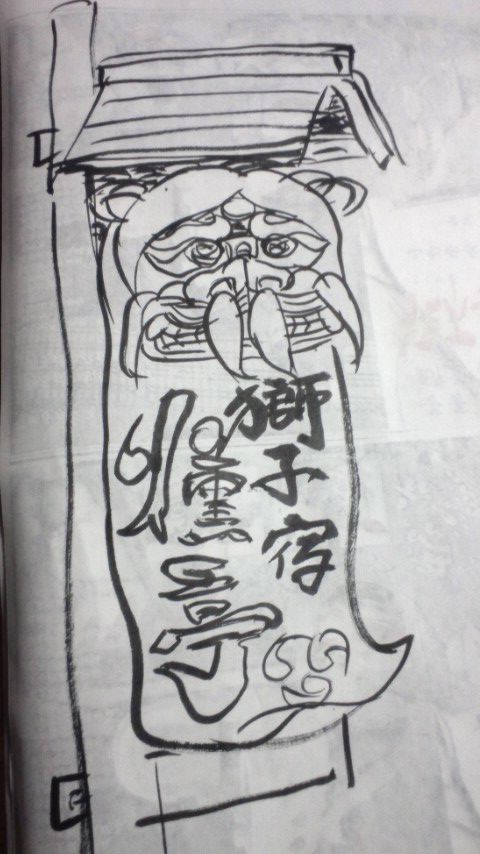 獅子宿
燻亭